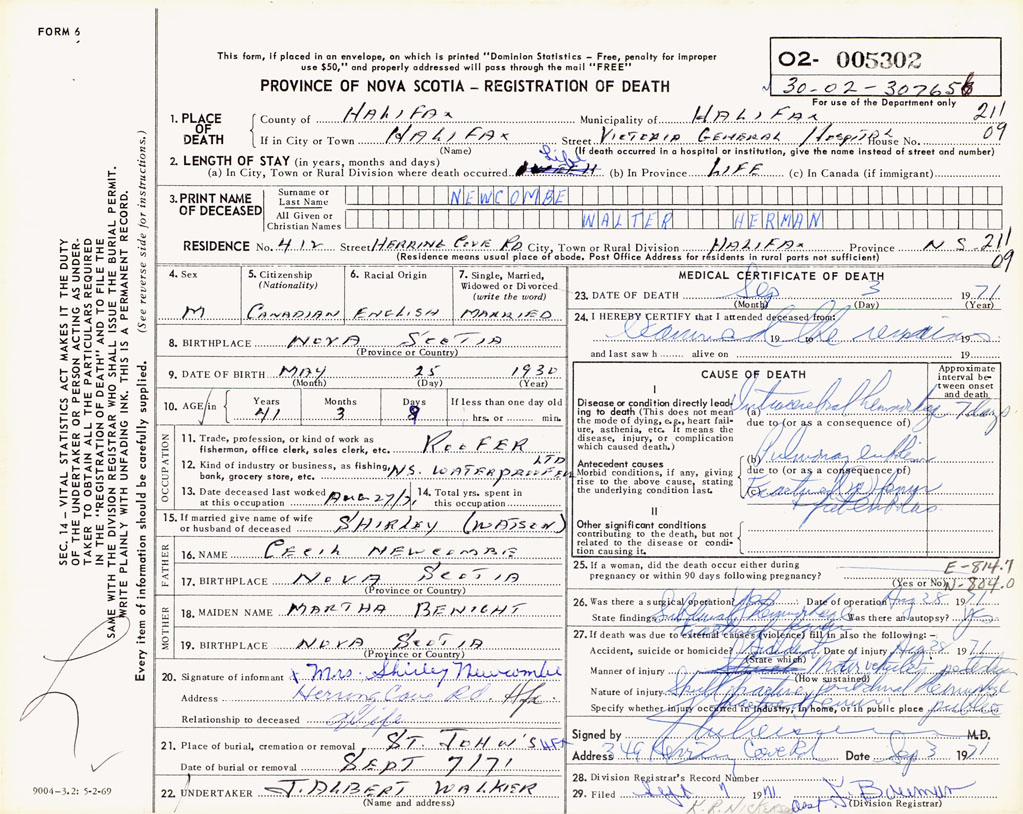 FORM 6
This form, if placed in an envelope, on which is printed "Dominion Statistics – Free, penalty for improper
use $50," and properly addressed will pass through the mail "FREE"
PROVINCE OF NOVA SCOTIA – REGISTRATION OF DEATH
02- 005302
30-02-307656
For use of the Department only
211
09
1. PLACE OF DEATH
County of HALIFAX Municipality of HALIFAX
If in City or Town HALIFAX Street VICTORIA GENERAL Hospital House No.
(Name) (If death occurred in a hospital or institution, give the name instead of street and number)
2. LENGTH OF STAY (in years, months and days)
(a) In City, Town or Rural Division where death occurred Life (b) In Province LIFE (c) In Canada (if immigrant)
3. PRINT NAME OF DECEASED
Surname or Last Name NEWCOMBE
All Given or Christian Names WALTER HERMAN
RESIDENCE No. 412 Street HERRING COVE RD City, Town or Rural Division HALIFAX Province N S. 211
09
(Residence means usual place of abode. Post Office Address for residents in rural parts not sufficient)
4. Sex
M
5. Citizenship
(Nationality)
CANADIAN
6. Racial Origin
ENGLISH
7. Single, Married,
Widowed or Divorced
(write the word)
MARRIED
8. BIRTHPLACE NOVA SCOTIA
(Province or Country)
9. DATE OF BIRTH MAY 25 1930
(Month) (Day) (Year)
10. AGE in Years Months Days If less than one day old
41 3 9 hrs. or min.
OCCUPATION
11. Trade, profession, or kind of work as
fisherman, office clerk, sales clerk, etc. ROOFER
12. Kind of industry or business, as fishing,
bank, grocery store, etc. N.S. WATERPROOFEN LTD
13. Date deceased last worked
at this occupation AUG 27/71
14. Total yrs. spent in
this occupation
15. If married give name of wife
or husband of deceased SHIRLEY (WATSON)
FATHER
16. NAME CECIL NEWCOMBE
17. BIRTHPLACE NOVA SCOTIA
(Province or Country)
MOTHER
18. MAIDEN NAME MARTHA BENIGHT
19. BIRTHPLACE NOVA SCOTIA
(Province or Country)
20. Signature of informant Mrs. Shirley Newcombe
Address Herring Cove Rd. Hfx
Relationship to deceased Wife
21. Place of burial, cremation or removal ST JOHN'S HFX
Date of burial or removal SEPT 7/71
22. UNDERTAKER J. ALBERT WALKER
(Name and address)
MEDICAL CERTIFICATE OF DEATH
23. DATE OF DEATH Sep 3 1971
(Month) (Day) (Year)
24. I HEREBY CERTIFY that I attended deceased from:
examined the remains
19 to 19
and last saw h alive on 19
CAUSE OF DEATH
Approximate
interval be-
tween onset
and death
I
Disease or condition directly lead-
ing to death (This does not mean
the mode of dying, e.g., heart fail-
ure, asthenia, etc. It means the
disease, injury, or complication
which caused death.)
(a) Intracerebral hemorrhage 7 days
due to (or as a consequence of)
Antecedent causes
Morbid conditions, if any, giving
rise to the above cause, stating
the underlying condition last.
(b) Pulmonary emboli
due to (or as a consequence of)
(c) Fractured femur
II
Other significant conditions
contributing to the death, but not
related to the disease or condi-
tion causing it.
25. If a woman, did the death occur either during
pregnancy or within 90 days following pregnancy?
(Yes or No)
E-814.7
N-804.0
26. Was there a surgical operation? Yes Date of operation Aug 28 1971
State findings Subdural hemorrhage Was there an autopsy? Yes
27. If death was due to external causes (violence) fill in also the following: –
Accident, suicide or homicide? Accident Date of injury Aug 28 1971
(State which)
Manner of injury Motor vehicle, pedestrian
(How sustained)
Nature of injury Skull fracture, subdural hemorrhage
fractured femur
Specify whether injury occurred in industry, in home, or in public place public
Signed by M.D.
Address 346 Herring Cove Rd Date Sep 3 1971
28. Division Registrar's Record Number
29. Filed Sept 7 1971
(Division Registrar)
SEC. 14 – VITAL STATISTICS ACT MAKES IT THE DUTY
OF THE UNDERTAKER OR PERSON ACTING AS UNDER-
TAKER TO OBTAIN ALL THE PARTICULARS REQUIRED
IN THE "REGISTRATION OF DEATH" AND TO FILE THE
SAME WITH THE DIVISION REGISTRAR WHO SHALL ISSUE THE BURIAL PERMIT.
WRITE PLAINLY WITH UNFADING INK. THIS IS A PERMANENT RECORD.
Every item of information should be carefully supplied. (See reverse side for instructions.)
9004-3.2: 5-2-69